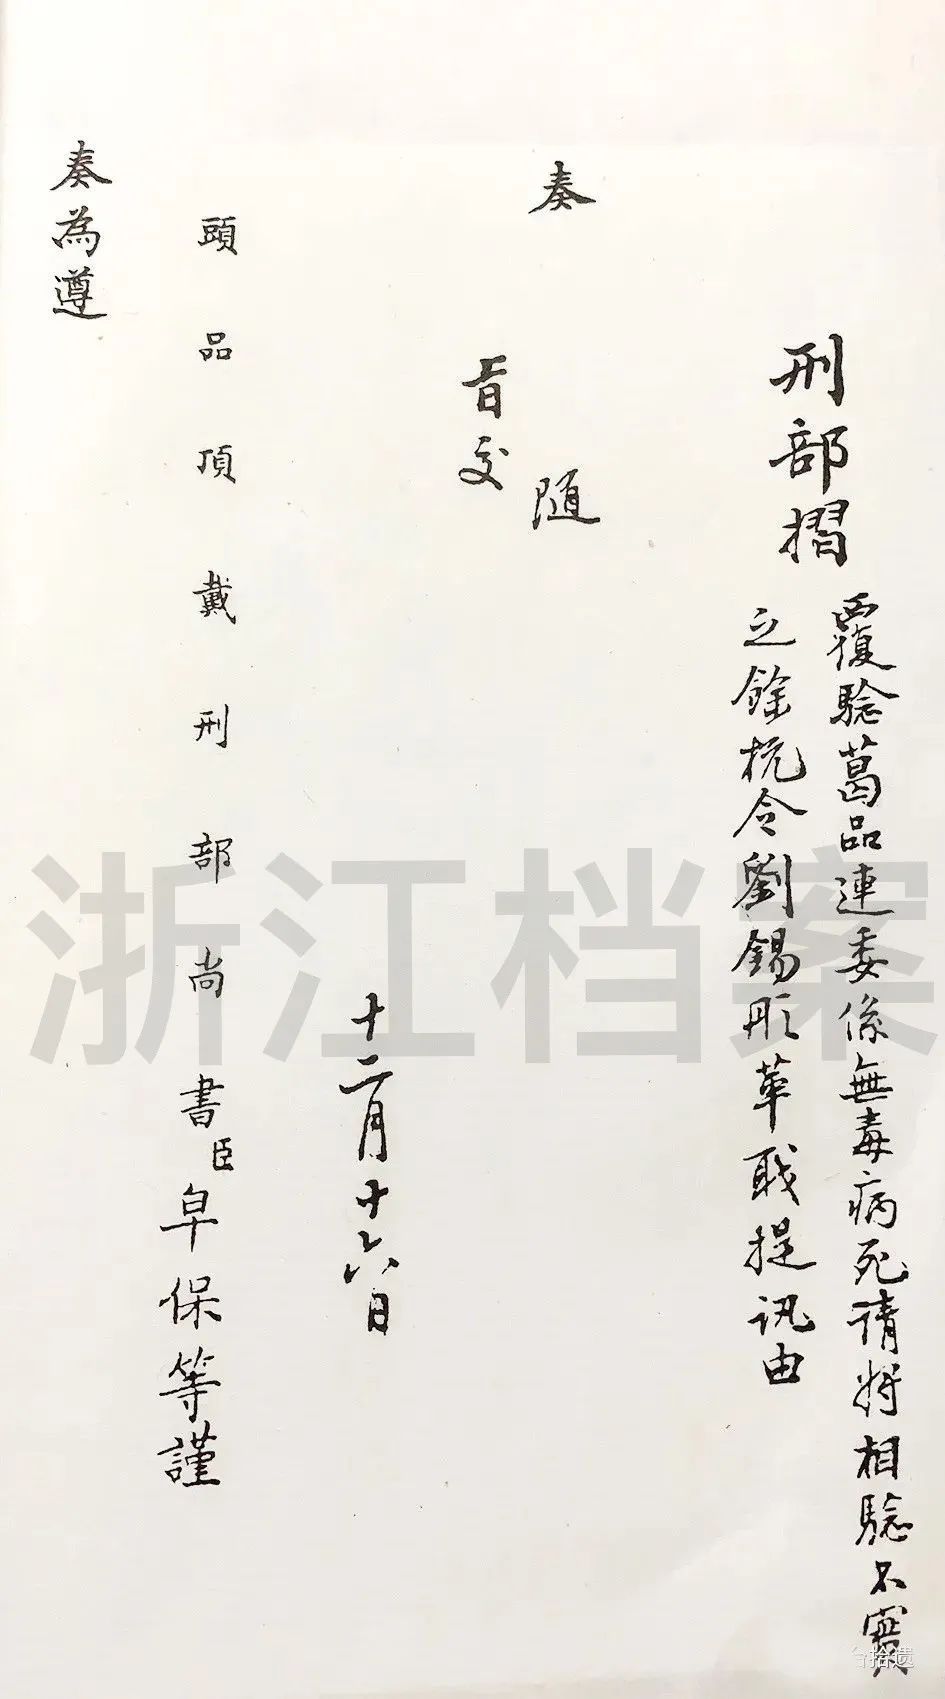 刑部摺
覆騐葛品連委係無毒病死請將相騐不實
之餘杭令劉錫彤革職提訊由
奏
随
旨交
十二月十六日
頭品頂戴刑部尚書臣皁保等謹
奏為遵
浙江档案
拾遗